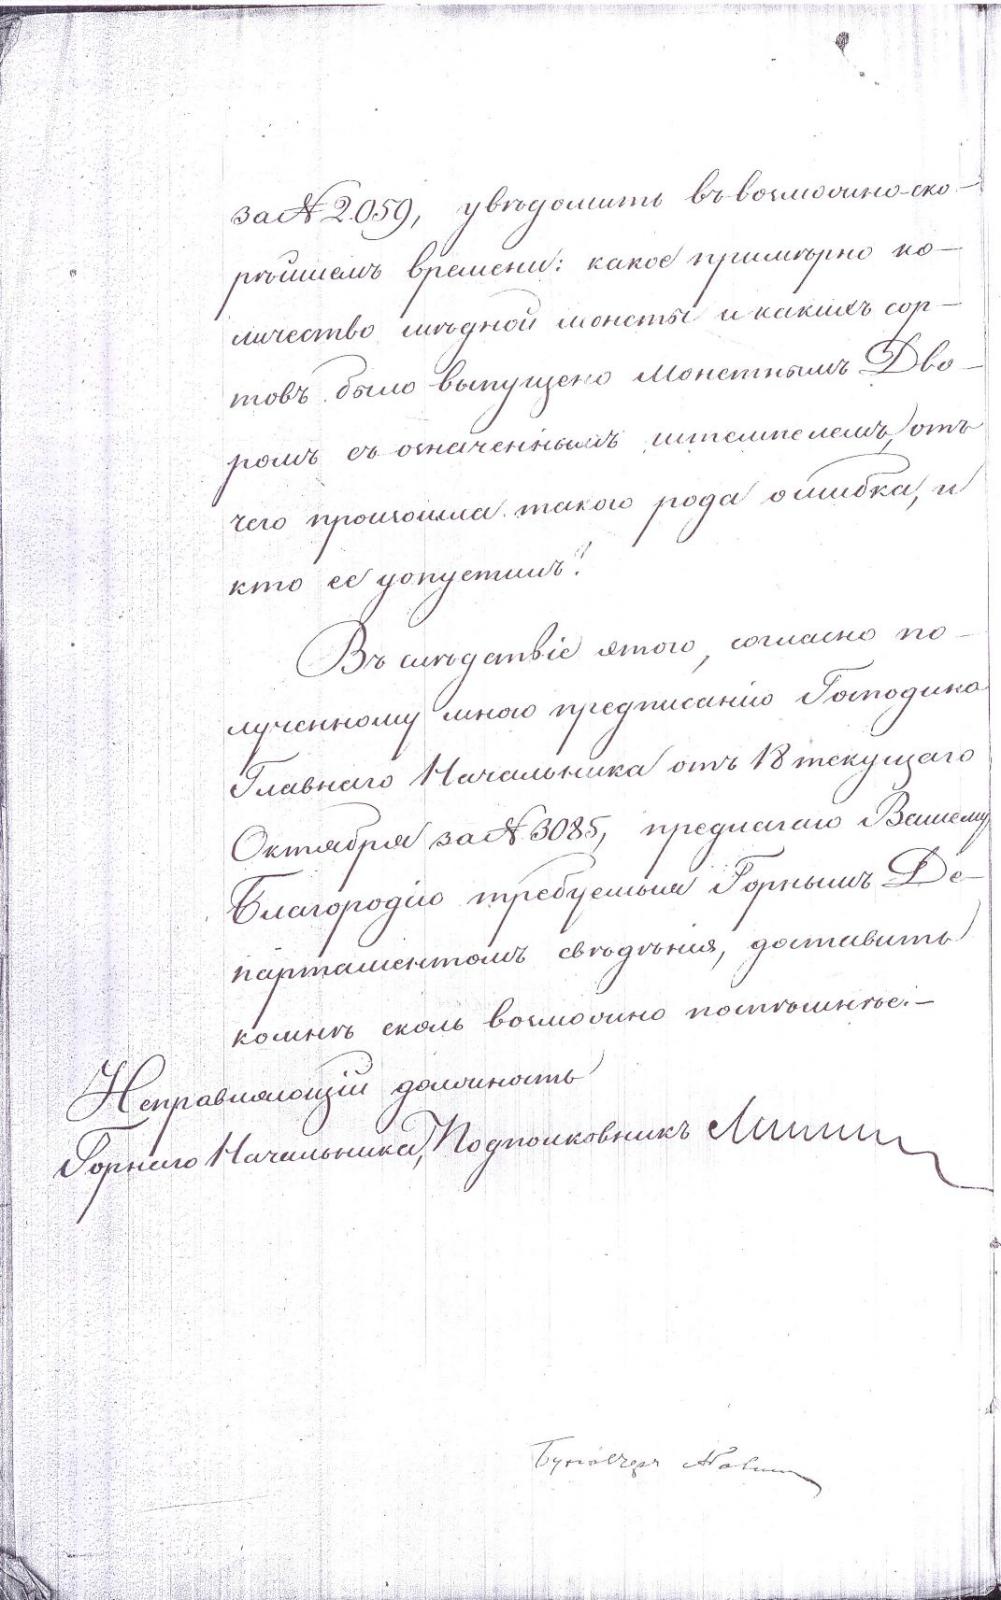 за № 2.059, увѣдомить въ возможно-ско-
рѣйшемъ времени: какое примѣрно ко-
личество мѣдной монеты и какихъ сор-
товъ было выпущено Монетнымъ Дво-
ромъ съ означеннымъ штемпелемъ, отъ
чего произошла такого рода ошибка, и
кто ее допустилъ?
Въ слѣдствіе этого, согласно по-
лученному мною предписанію Господина
Главнаго Начальника отъ 18 текущаго
Октября за № 3085, предлагаю Вашему
Благородію требуемыя Горнымъ Де-
партаментомъ свѣдѣнія, доставить
ко мнѣ сколь возможно поспѣшнѣе.—
Исправляющій должность
Горнаго Начальника, Подполковникъ